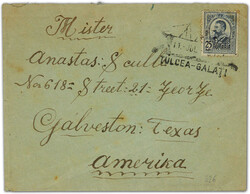 Mister
Anastas
No 618- Street-21-
Galveston- Texas
Amerika
25
TULCEA-GALATI